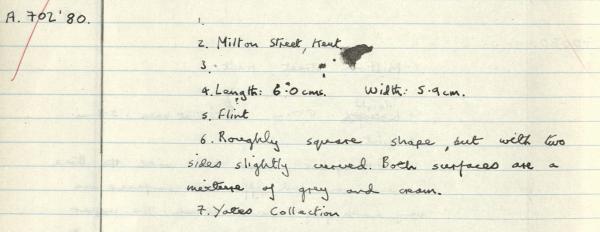 A. 702'80.
1.
2. Milton Street, Kent.
3.
4. Length: 6.0 cms. Width: 5.9 cm.
5. Flint
6. Roughly square shape, but with two
sides slightly curved. Both surfaces are a
mixture of grey and cream.
7. Yates Collection